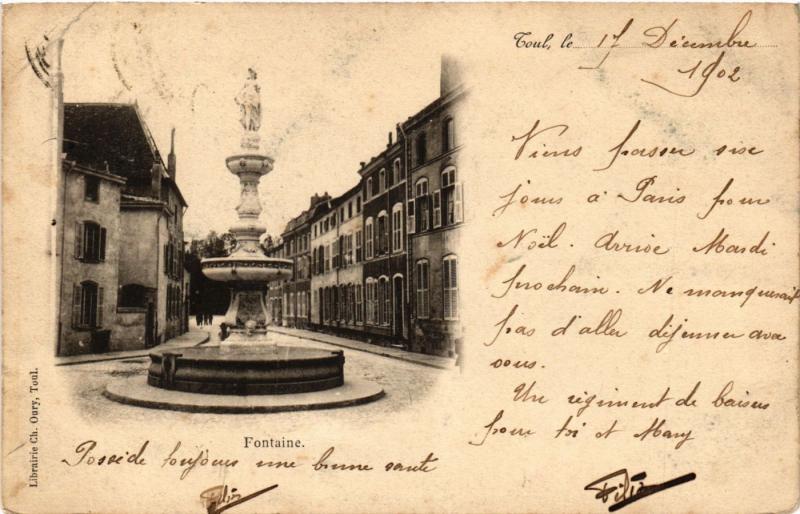 Toul, le 17 Décembre
1902
Viens passer six
jours à Paris pour
Noël. Arrive Mardi
prochain. Ne manquerait
pas d'aller déjeuner avec
vous.
Un régiment de baisers
pour toi et Mary
Fontaine.
Possède toujours une bonne santé
Librairie Ch. Oury, Toul.